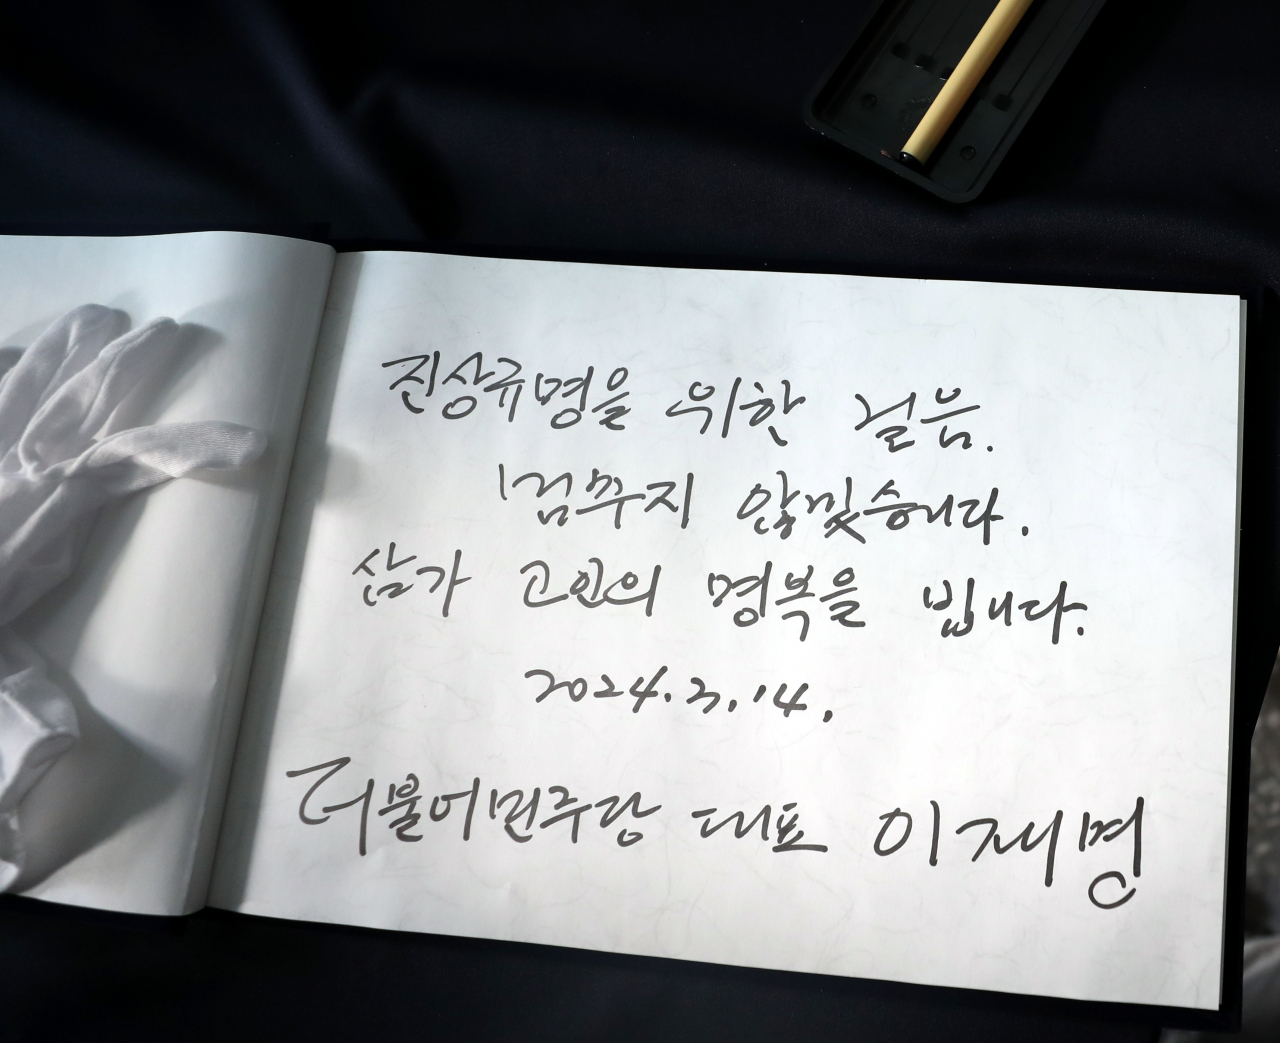 진상규명을 위한 걸음.
멈추지 않겠습니다.
삼가 고인의 명복을 빕니다.
2024.3.14.
더불어민주당 대표 이재명